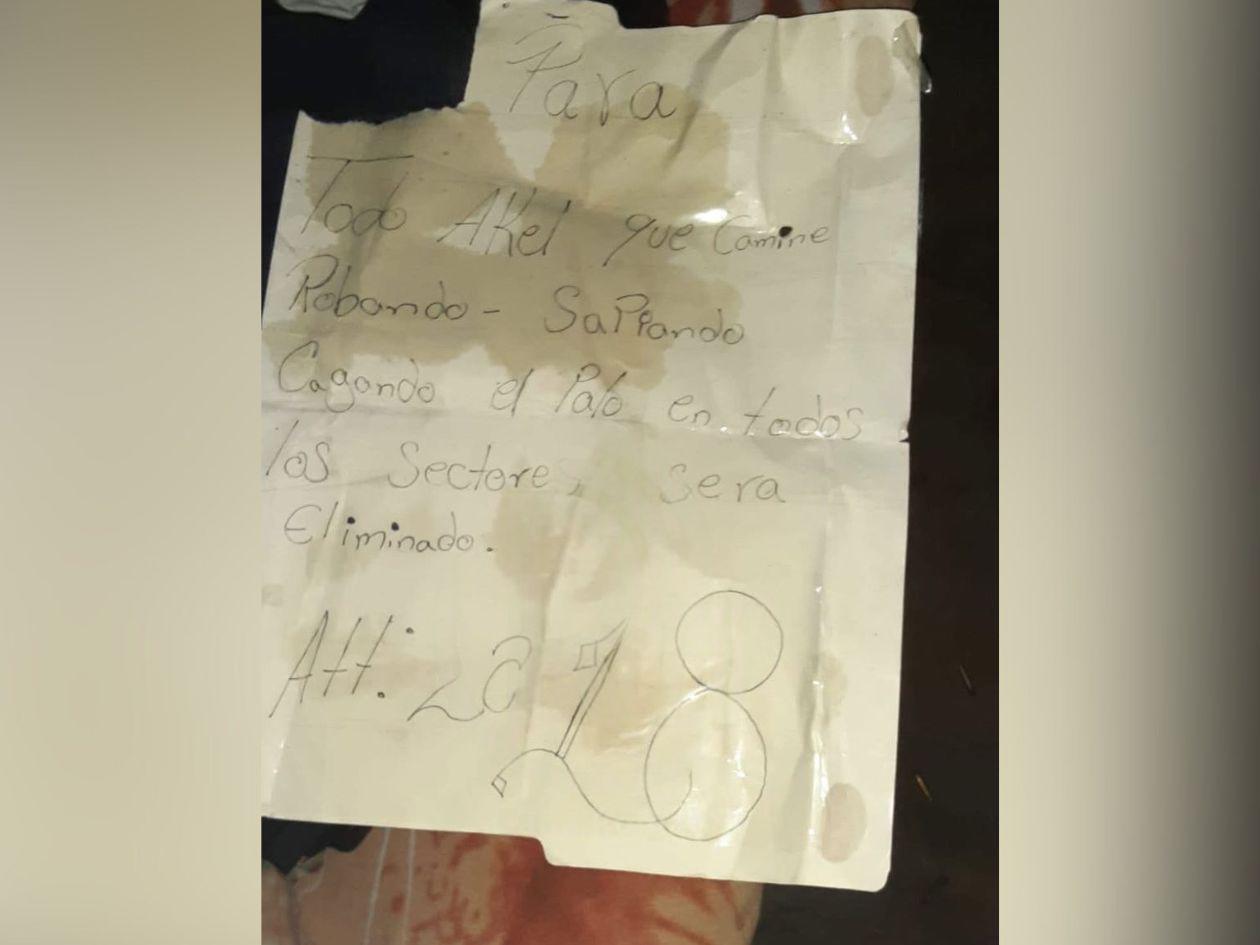 Para
Todo AKel que Camine
Robando - SaPiando
Cagando el Palo en todos
los Sectores, Sera
Eliminado.
Att. La 18